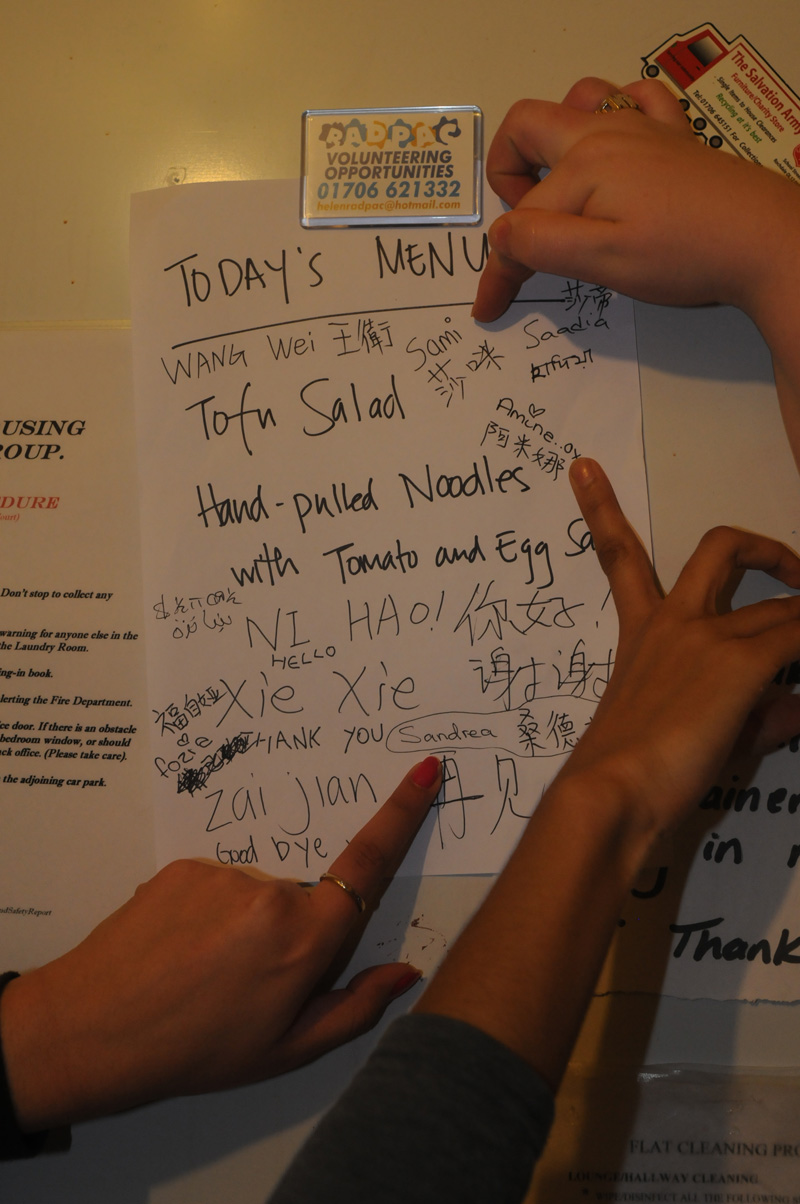 The Salvation Army
Furniture/Charity Store
Single Items to House Clearances
Recycling at it's best
Tel: 01706 645151 For Collection
RADPAC
VOLUNTEERING
OPPORTUNITIES
01706 621332
helenradpac@hotmail.com
TODAY'S MENU
莎蒂
WANG Wei 王衛 Sami Saadia
莎咪
Tofu Salad
Amine
阿米娜
Hand-pulled Noodles
with Tomato and Egg Sa
NI HAO! 你好!
HELLO
Xie Xie 谢谢
福自娅
fozie
THANK YOU Sandrea 桑德
zai jian 再见
Good bye
USING
ROUP.
DURE
Don't stop to collect any
warning for anyone else in the
the Laundry Room.
ng-in book.
lerting the Fire Department.
ce door. If there is an obstacle
bedroom window, or should
ck office. (Please take care).
the adjoining car park.
odSafetyReport
ainer
in
Thank
FLAT CLEANING PRO
LOUNGE/HALLWAY CLEANING
WIPE/DISINFECT ALL THE FOLLOWING